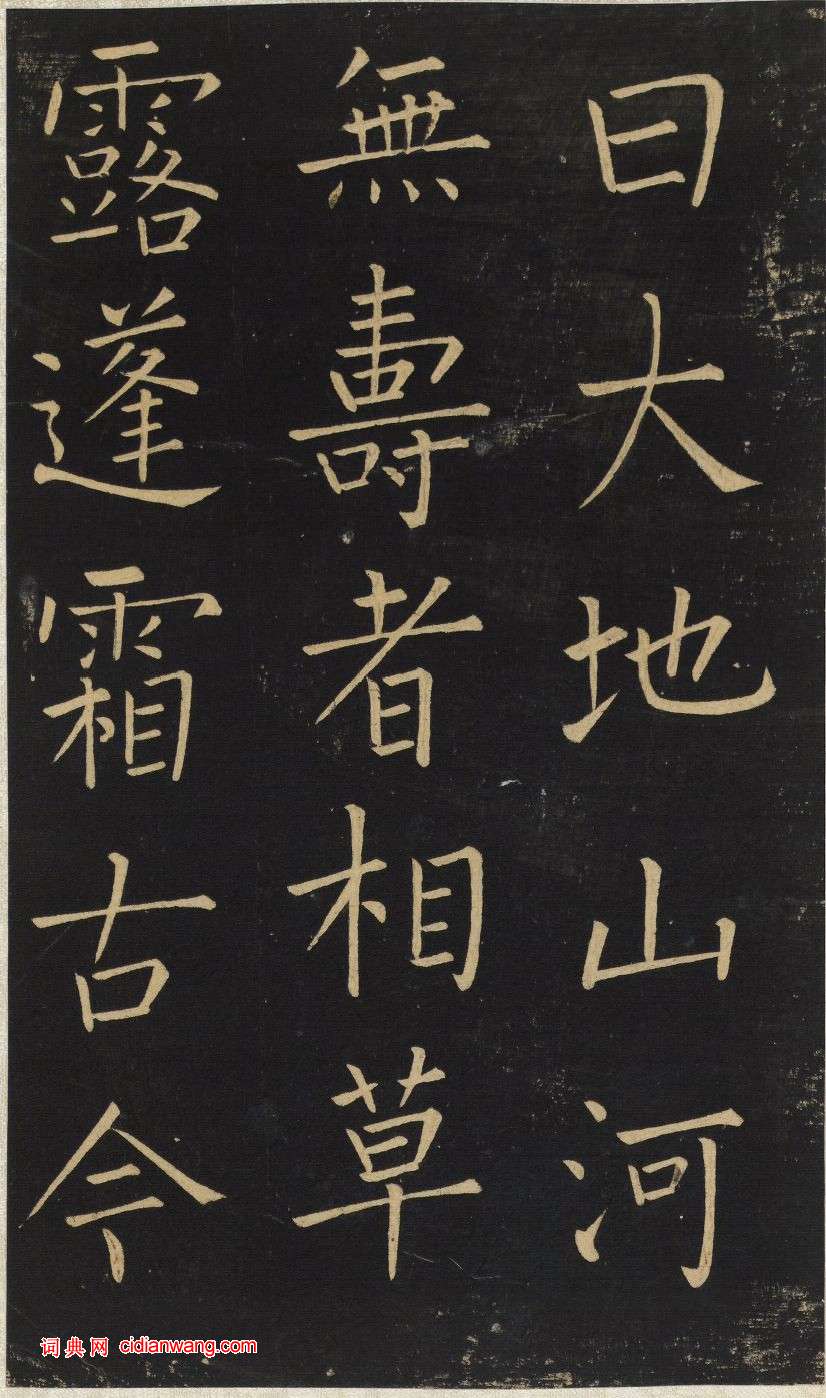 曰大地山河
無壽者相草
露蓬霜古今
词典网 cidianwang.com